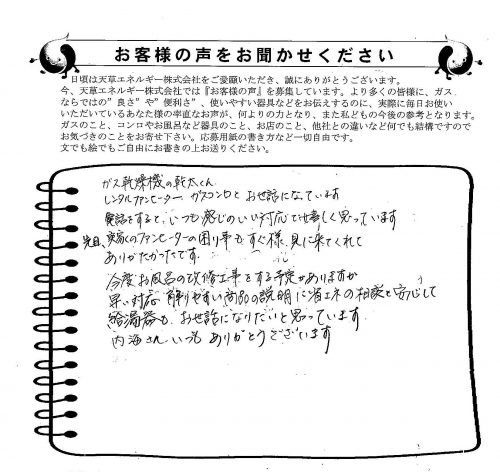 お客様の声をお聞かせください
日頃は天草エネルギー株式会社をご愛顧いただき、誠にありがとうございます。
今、天草エネルギー株式会社では『お客様の声』を募集しています。より多くの皆様に、ガス
ならではの”良さ”や”便利さ”、使いやすい器具などをお伝えするのに、実際に毎日お使い
いただいているあなた様の率直なお声が、何よりの力となり、また私どもの今後の参考となります。
ガスのこと、コンロやお風呂など器具のこと、お店のこと、他社との違いなど何でも結構ですので
お気づきのことをお寄せ下さい。応募用紙の書き方など一切自由です。
文でも絵でもご自由にお書きの上お送りください。
ガス乾燥機の乾太くん
レンタルファンヒーター ガスコンロと お世話になっています
電話をすると、いつも感じのいい対応で嬉しく思っています
先日、実家のファンヒーターの困り事もすぐ様、見に来てくれて
ありがたかったです。
今度お風呂の改修工事をする予定がありますが
早い対応 解りやすい商品の説明に省エネの相談と安心して
給湯器も、お世話になりたいと思っています。
内海さん いつも ありがとうございます